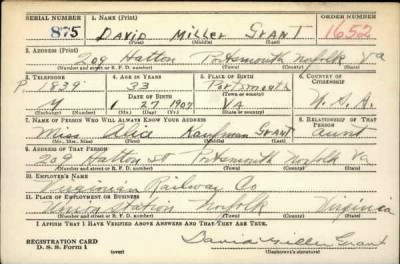 SERIAL NUMBER 1. NAME (Print) ORDER NUMBER
875 DAVID MILLER GRANT 1652
(First) (Middle) (Last)
2. ADDRESS (Print)
209 Hatton Portsmouth Norfolk Va
(Number and street or R. F. D. number) (Town) (County) (State)
3. TELEPHONE 4. AGE IN YEARS 5. PLACE OF BIRTH 6. COUNTRY OF CITIZENSHIP
P. 1839 33 Portsmouth
DATE OF BIRTH (Town or county)
1 27 1907 VA U.S.A.
(Exchange) (Number) (Mo.) (Day) (Yr.) (State or country)
7. NAME OF PERSON WHO WILL ALWAYS KNOW YOUR ADDRESS 8. RELATIONSHIP OF THAT PERSON
Miss Alice Kaufman Grant aunt
(Mr., Mrs., Miss) (First) (Middle) (Last)
9. ADDRESS OF THAT PERSON
209 Hatton St Portsmouth Norfolk Va
(Number and street or R. F. D. number) (Town) (County) (State)
10. EMPLOYER'S NAME
Virginian Railway Co
11. PLACE OF EMPLOYMENT OR BUSINESS
Union Station Norfolk Virginia
(Number and street or R. F. D. number) (Town) (County) (State)
I AFFIRM THAT I HAVE VERIFIED ABOVE ANSWERS AND THAT THEY ARE TRUE.
REGISTRATION CARD
D. S. S. Form 1 (over) David Miller Grant
(Registrant's signature)